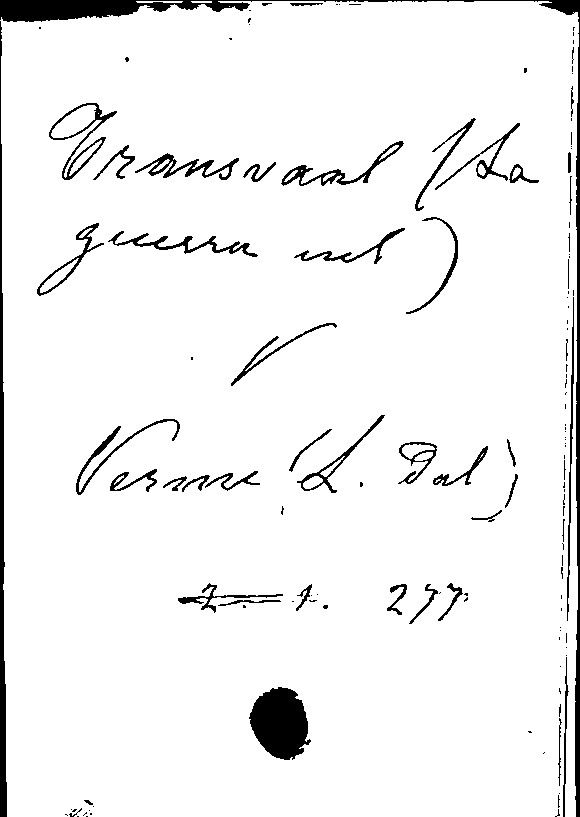 Transvaal (La
guerra nel)
V
Verme (L. Dal)
2. 1. 277